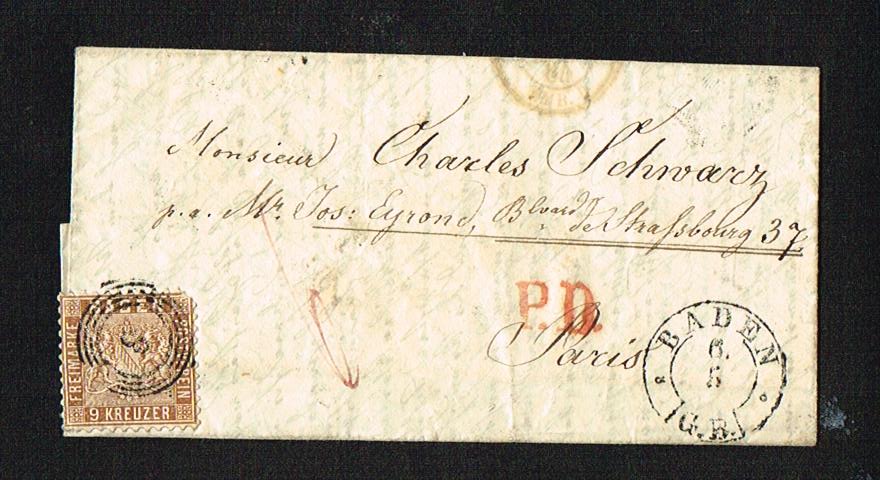 Monsieur Charles Schwarz
p. a. Mr. Jos: Eyrond, Blvard de Strassbourg 37
P.D.
Paris
BADEN
6.
5
G.B.
FREIMARKE
9 KREUZER